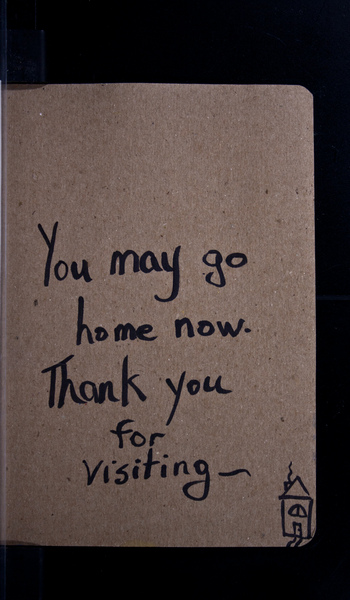 You may go
home now.
Thank you
for
visiting~